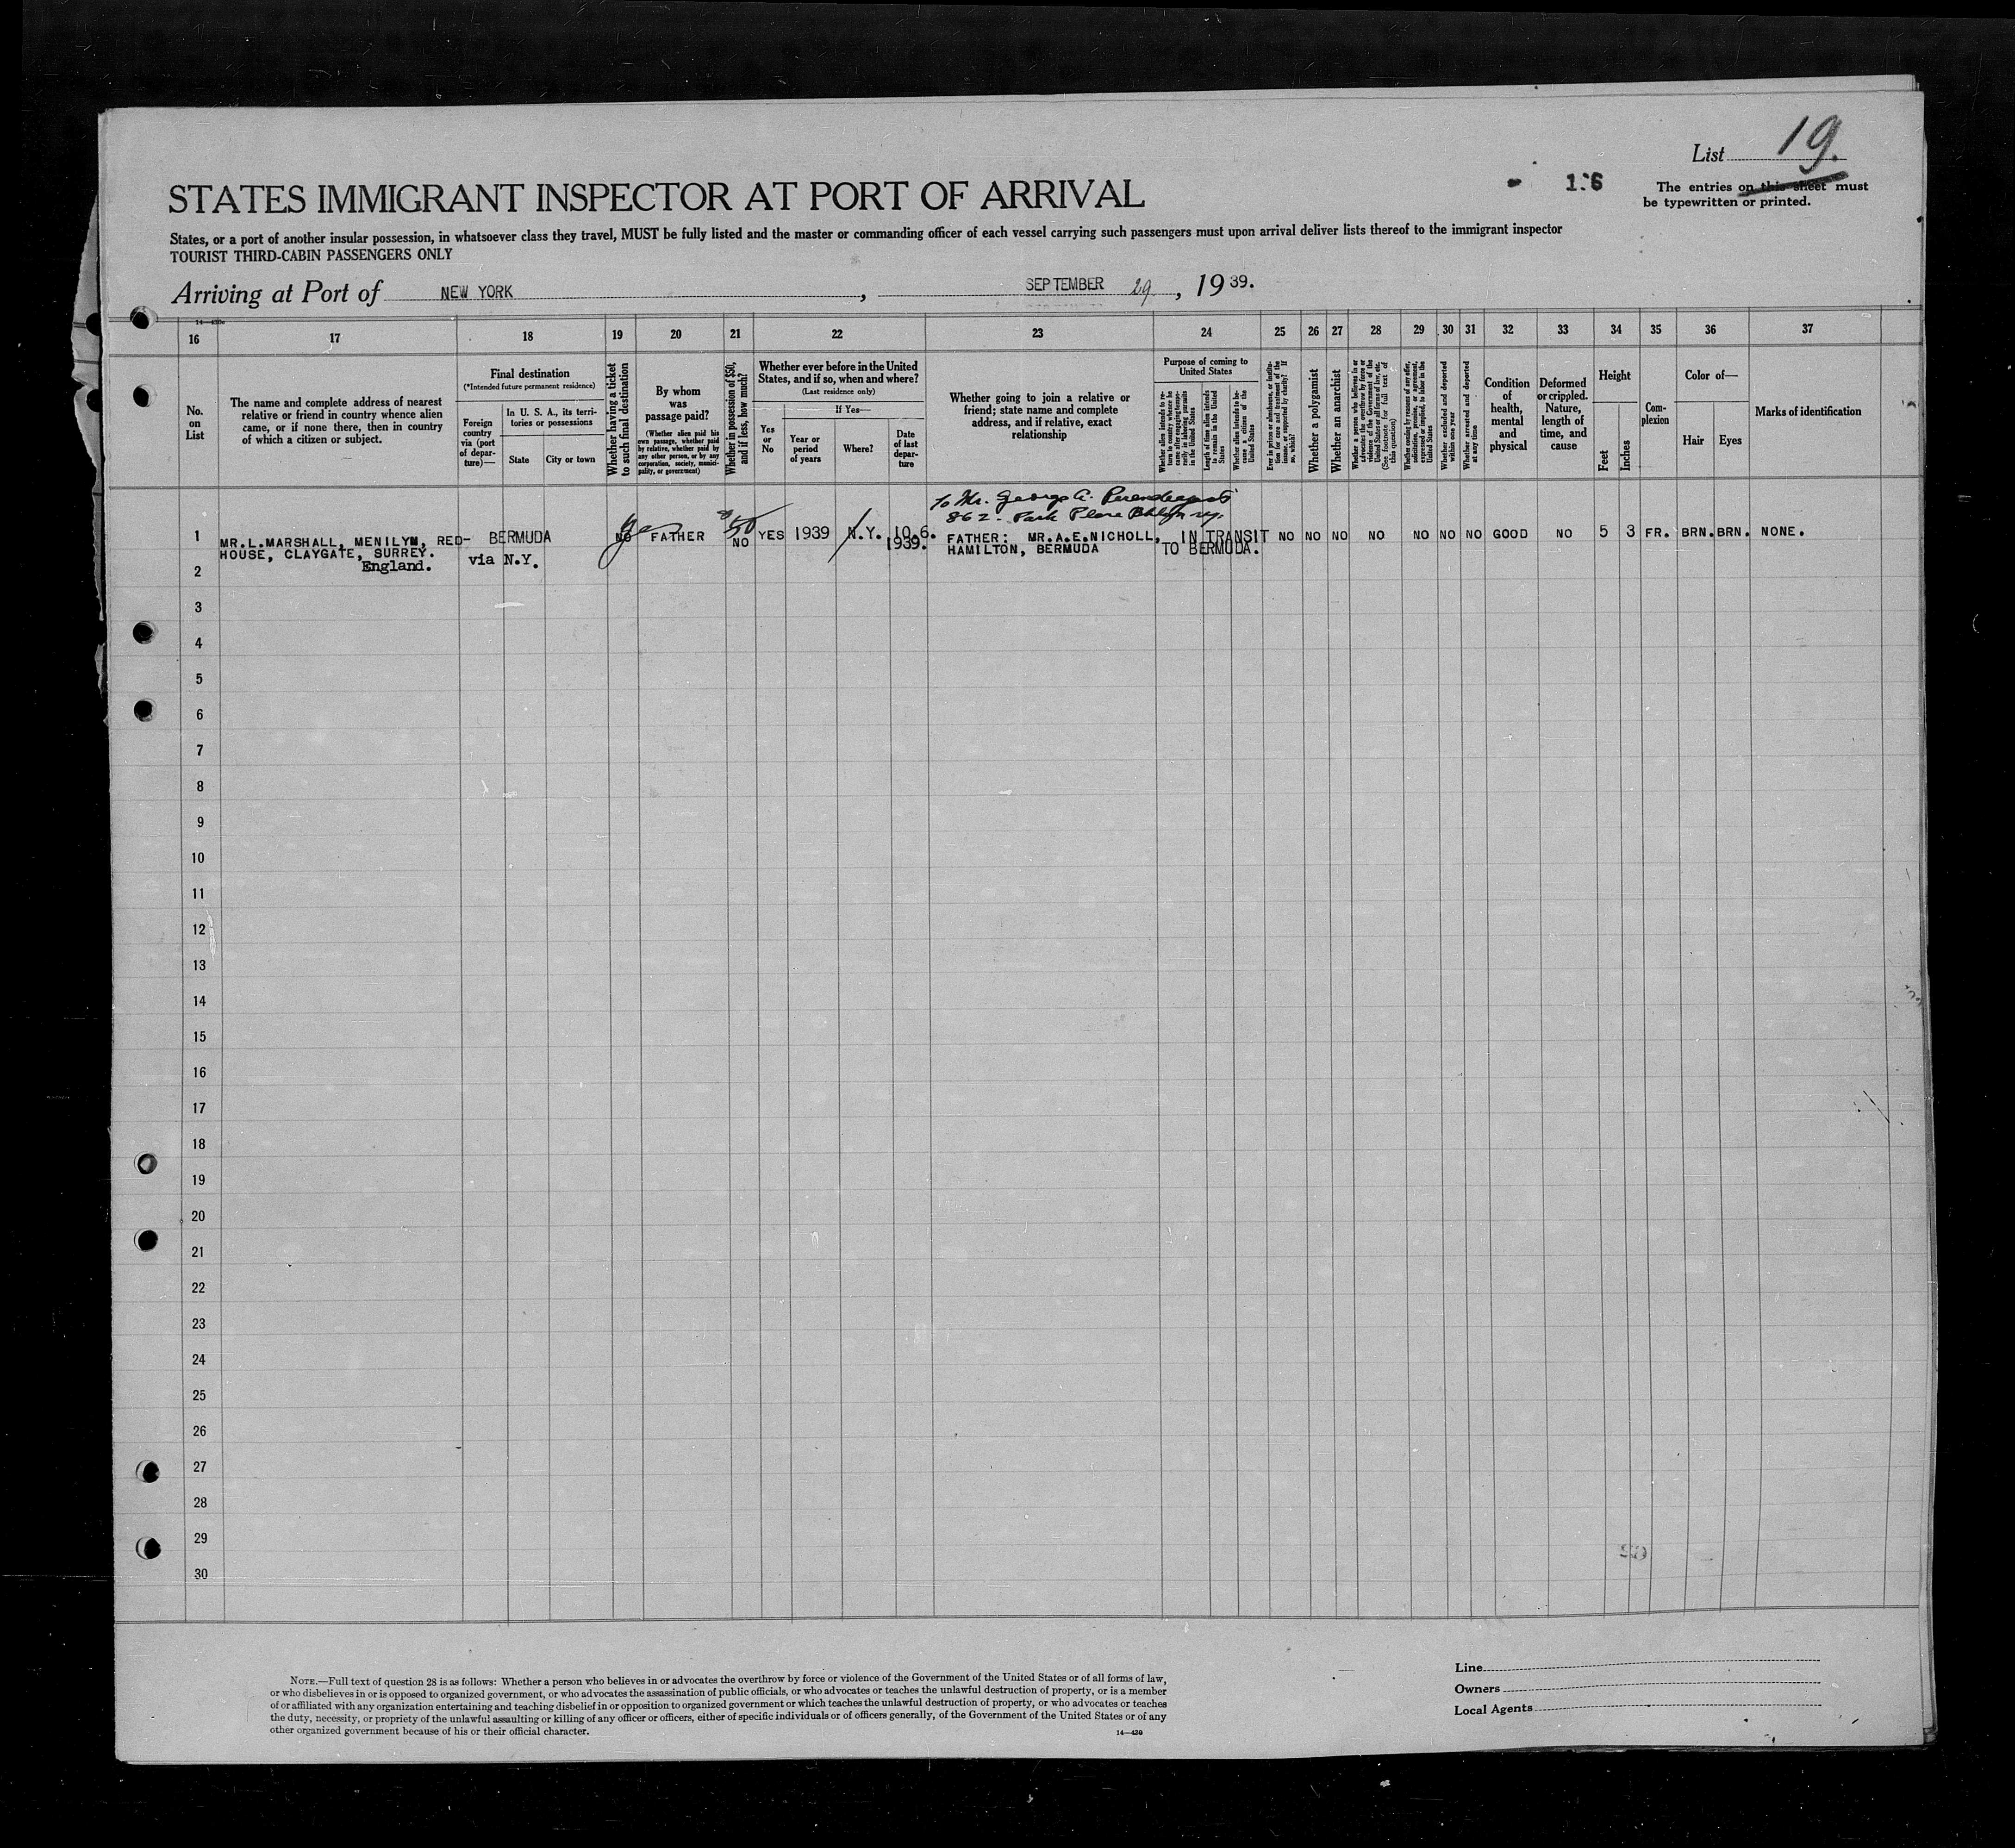 List 19.
STATES IMMIGRANT INSPECTOR AT PORT OF ARRIVAL
The entries on this sheet must
be typewritten or printed.
States, or a port of another insular possession, in whatsoever class they travel, MUST be fully listed and the master or commanding officer of each vessel carrying such passengers must upon arrival deliver lists thereof to the immigrant inspector
TOURIST THIRD-CABIN PASSENGERS ONLY
Arriving at Port of NEW YORK, SEPTEMBER 29, 1939.
16 17 18 19 20 21 22 23 24 25 26 27 28 29 30 31 32 33 34 35 36 37
No.
on
List
The name and complete address of nearest
relative or friend in country whence alien
came, or if none there, then in country
of which a citizen or subject.
Final destination
(*Intended future permanent residence)
Foreign
country
via (port
of depar-
ture)—
In U. S. A., its terri-
tories or possessions
State
City or town
Whether having a ticket
to such final destination
By whom
was
passage paid?
(Whether alien paid his
own passage, whether paid
by relative, whether paid by
any other person, or by any
corporation, society, munici-
pality, or government)
Whether in possession of $50,
and if less, how much?
Whether ever before in the United
States, and if so, when and where?
(Last residence only)
Yes
or
No
If Yes—
Year or
period
of years
Where?
Date
of last
depar-
ture
Whether going to join a relative or
friend; state name and complete
address, and if relative, exact
relationship
Purpose of coming to
United States
Whether alien intends to re-
turn to country whence he
came after engaging tempo-
rarily in laboring pursuits
in the United States
Length of time alien intends
to remain in the United
States
Whether alien intends to be-
come a citizen of the
United States
Ever in prison or almshouse, or institu-
tion for care and treatment of the
insane, or supported by charity? If
so, which?
Whether a polygamist
Whether an anarchist
Whether a person who believes in or
advocates the overthrow by force or
violence of the Government of the
United States or all forms of law, etc.
(See footnote for full text of
this question)
Whether coming by reasons of any offer,
solicitation, promise, or agreement,
expressed or implied, to labor in the
United States
Whether excluded and deported
within one year
Whether arrested and deported
at any time
Condition
of
health,
mental
and
physical
Deformed
or crippled.
Nature,
length of
time, and
cause
Height
Feet
Inches
Com-
plexion
Color of—
Hair
Eyes
Marks of identification
To Mr. George A.
862 - Park Place Bklyn ny.
1 MR.L.MARSHALL, MENILYM, RED- BERMUDA NO FATHER 50 NO YES 1939 N.Y. 10.6. FATHER: MR.A.E.NICHOLL, IN TRANSIT NO NO NO NO NO NO NO GOOD NO 5 3 FR. BRN. BRN. NONE.
HOUSE, CLAYGATE, SURREY. 1939. HAMILTON, BERMUDA TO BERMUDA.
England. via N.Y.
2
3
4
5
6
7
8
9
10
11
12
13
14
15
16
17
18
19
20
21
22
23
24
25
26
27
28
29
30
NOTE.—Full text of question 28 is as follows: Whether a person who believes in or advocates the overthrow by force or violence of the Government of the United States or of all forms of law,
or who disbelieves in or is opposed to organized government, or who advocates the assassination of public officials, or who advocates or teaches the unlawful destruction of property, or is a member
of or affiliated with any organization entertaining and teaching disbelief in or opposition to organized government or which teaches the unlawful destruction of property, or who advocates or teaches
the duty, necessity, or propriety of the unlawful assaulting or killing of any officer or officers, either of specific individuals or of officers generally, of the Government of the United States or of any
other organized government because of his or their official character.
14—430
Line
Owners
Local Agents